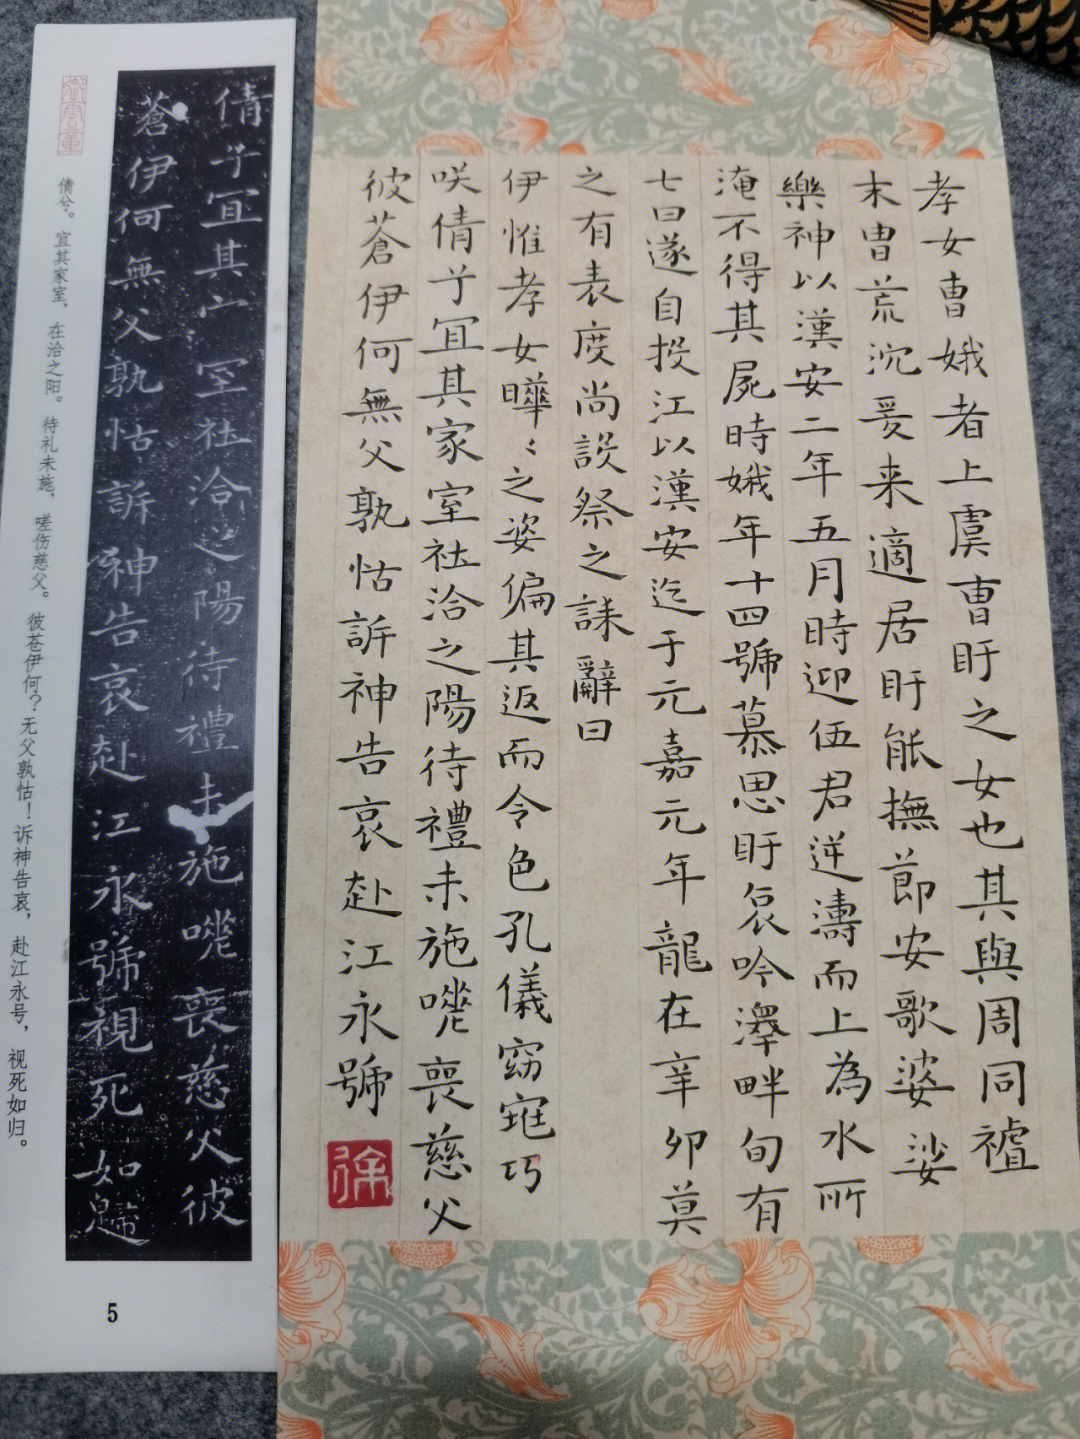 孝女曹娥者上虞曹盱之女也其與周同禇
末曺荒沉爰来適居盱能撫節安歌婆娑
樂神以漢安二年五月時迎伍君逆濤而上為水所
淹不得其屍時娥年十四號慕思盱哀吟澤畔旬有
七日遂自投江以漢安迄于元嘉元年龍在辛卯莫
之有表度尚設祭之誄辭曰
伊惟孝女曄〻之姿偏其返而令色孔儀窈窕巧
咲倩兮宜其家室在洽之陽待禮未施嗟喪慈父
彼蒼伊何無父孰怙訴神告哀赴江永號
徐
倩兮宜其家室在洽之陽待禮未施嗟喪慈父彼
蒼伊何無父孰怙訴神告哀赴江永號視死如歸
倩兮。宜其家室，在洽之阳。待礼未施，嗟伤慈父。彼苍伊何？无父孰怙！诉神告哀，赴江永号，视死如归。
5